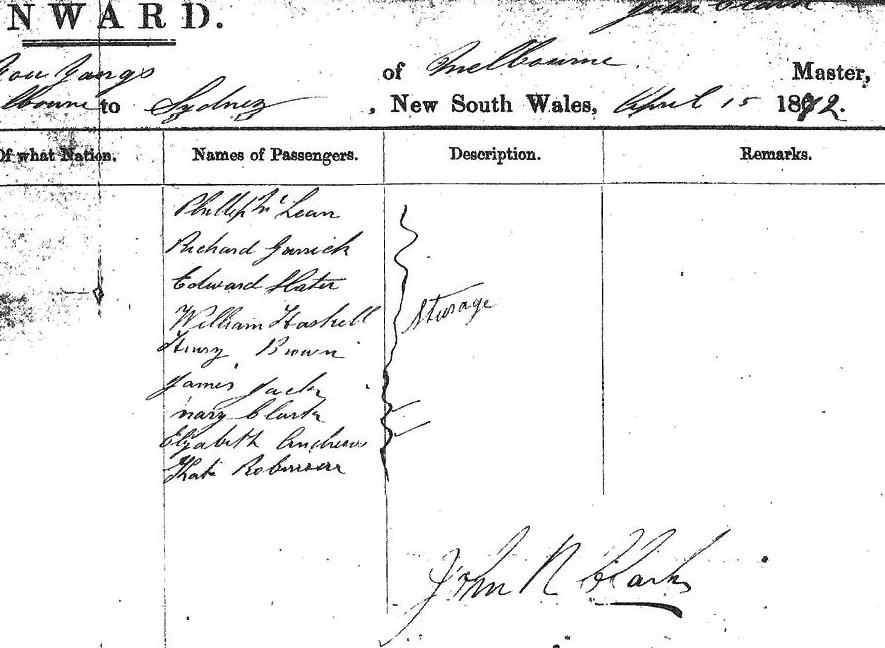 NWARD.
John Clark
You Yangs of Melbourne Master,
lbourne to Sydney, New South Wales, April 15 1872.
Of what Nation. Names of Passengers. Description. Remarks.
Phillip McLean
Richard Garrick
Edward Slater
William Haskell
Sturage
Henry Brown
James Jack
Mary Clark
Elizabeth Andrews
Kate Robinson
John N Clark